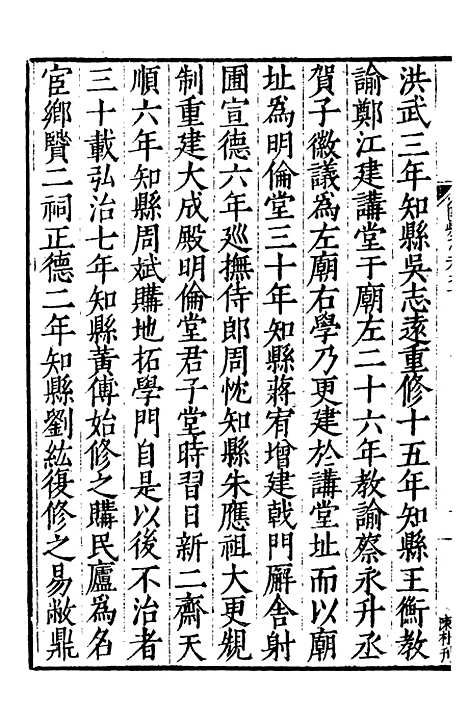 洪武三年知縣吳志遠重修十五年知縣王衡教
諭鄭江建講堂于廟左二十六年教諭蔡永升丞
賀子徽議為左廟右學乃更建於講堂址而以廟
址為明倫堂三十年知縣蔣宥增建戟門廨舍射
圃宣德六年廵撫侍郎周忱知縣朱應祖大更規
制重建大成殿明倫堂君子堂時習日新二齋天
順六年知縣周斌購地拓學門自是以後不治者
三十載弘治七年知縣黃傅始修之購民廬為名
宦鄉賢二祠正德二年知縣劉紘復修之易敝鼎
陳朴刋